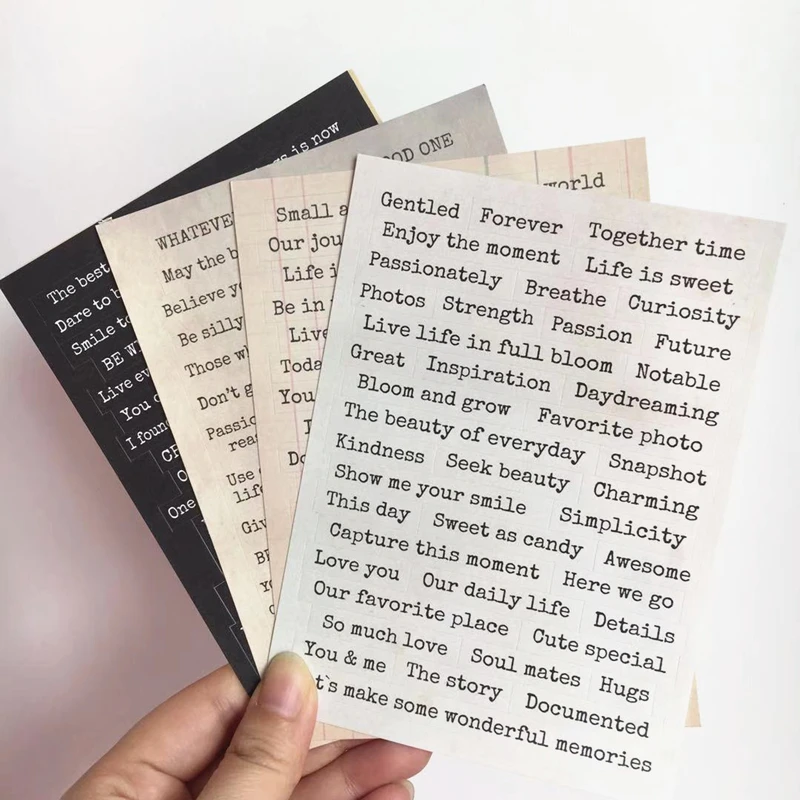 The best
Dare to
Smile to
BE
Live
You
I
One
is now
WHATEVE
OOD ONE
May the
Believe
Be silly
Those
Don't
Use
BE
Small a
world
Our jou
Life i
Be in
Live
Toda
You
Do
Gentled Forever Together time
Enjoy the moment Life is sweet
Passionately Breathe Curiosity
Photos Strength Passion Future
Live life in full bloom Notable
Great Inspiration Daydreaming
Bloom and grow Favorite photo
The beauty of everyday Snapshot
Kindness Seek beauty Charming
Show me your smile Simplicity
This day Sweet as candy Awesome
Capture this moment Here we go
Love you Our daily life Details
Our favorite place Cute special
So much love Soul mates Hugs
You & me The story Documented
t`s make some wonderful memories